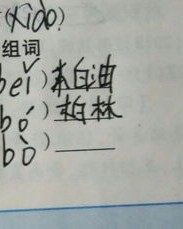 (xiào?)
组词
beǐ)柏油
bó)柏林
bò)